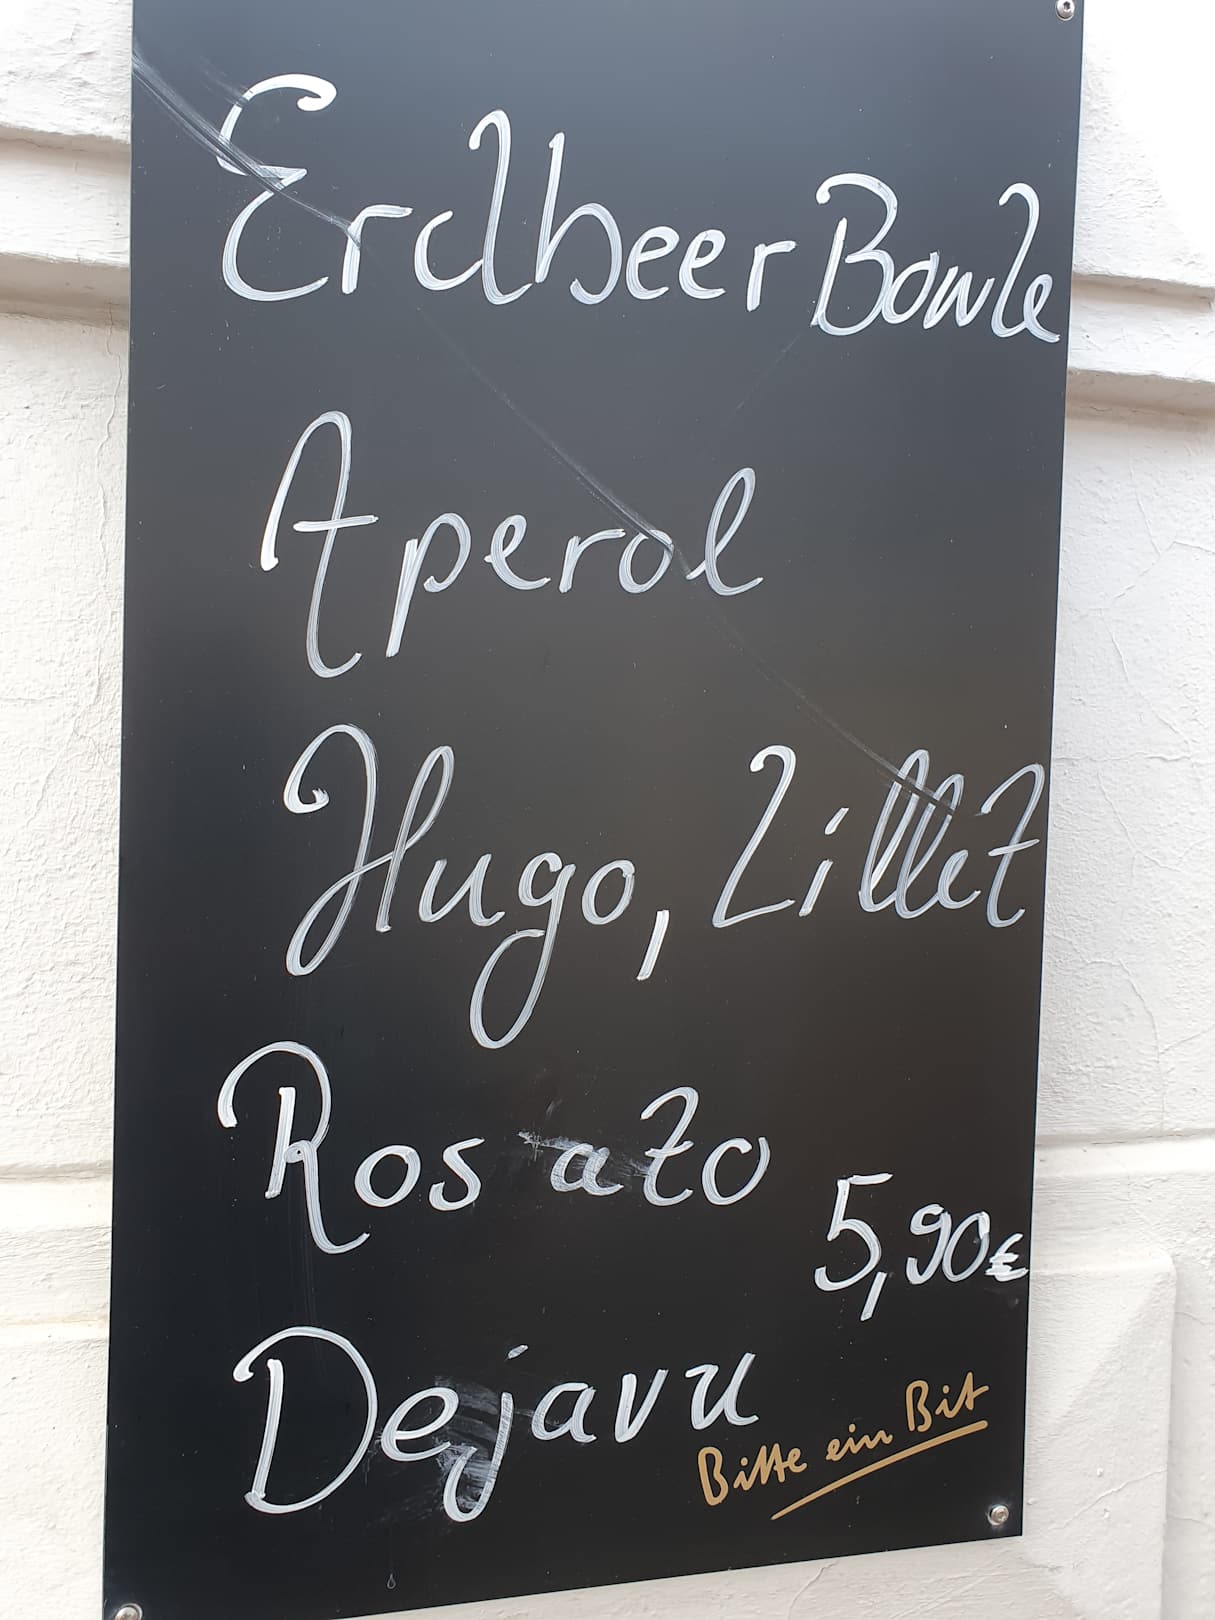 Erdbeer Bowle
Aperol
Hugo, Lillet
Rosato
5,90€
Dejavu
Bitte ein Bit